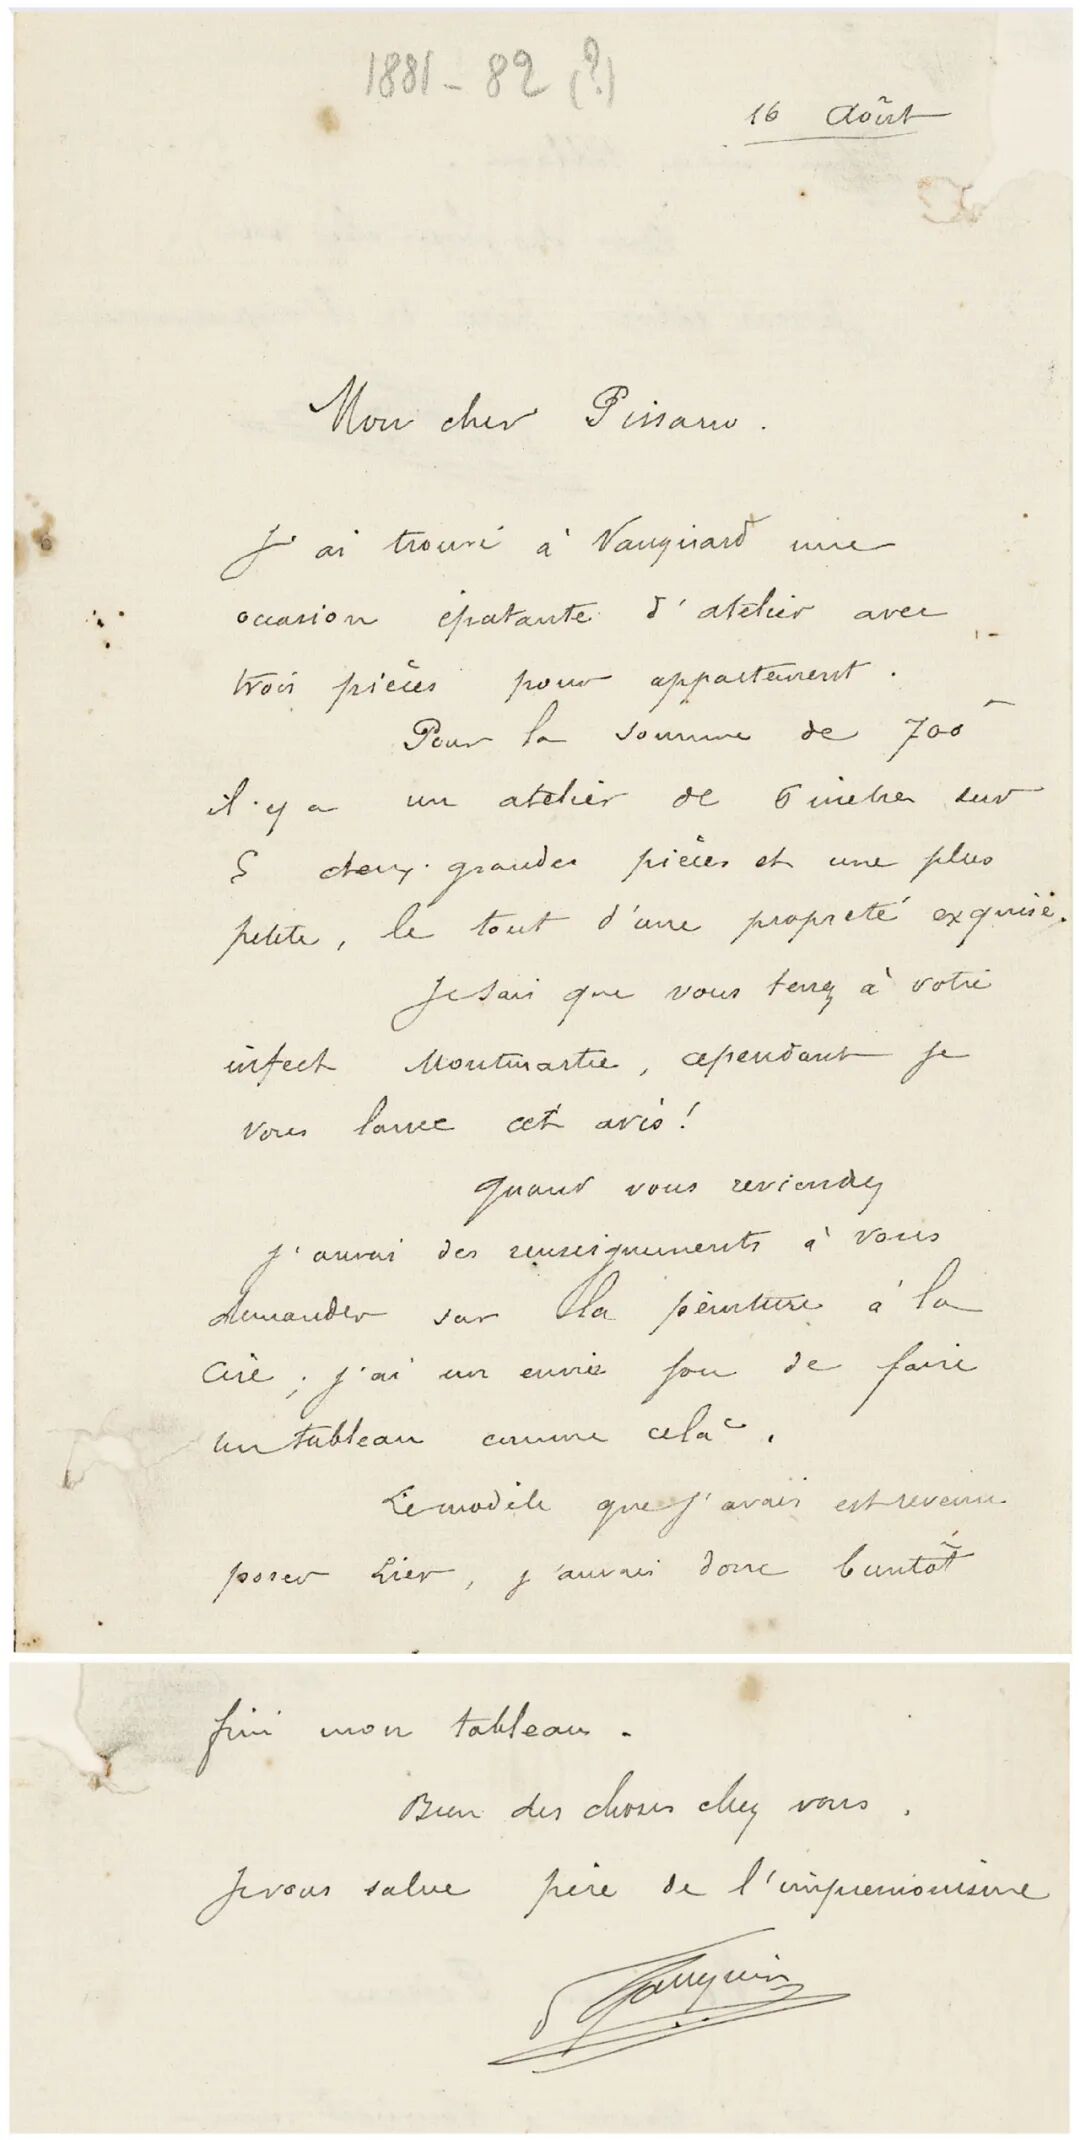 1881-82 (?)
16 Août
Mon cher Pissarro.
J'ai trouvé à Vaugirard une
occasion épatante d'atelier avec
trois pièces pour appartement.
Pour la somme de 700
il y a un atelier de 6 mètres sur
5 deux grandes pièces et une plus
petite, le tout d'une propreté exquise.
Je sais que vous tenez à votre
infect Montmartre, cependant je
vous lance cet avis!
Quand vous reviendrez
j'aurai des renseignements à vous
demander sur la peinture à la
cire; j'ai un envie fou de faire
un tableau comme celà.
Le modèle que j'avais est revenu
poser hier, j'aurai donc bientôt
fini mon tableau.
Bien des choses chez vous.
Je vous salue père de l'impressionisme
P Gauguin